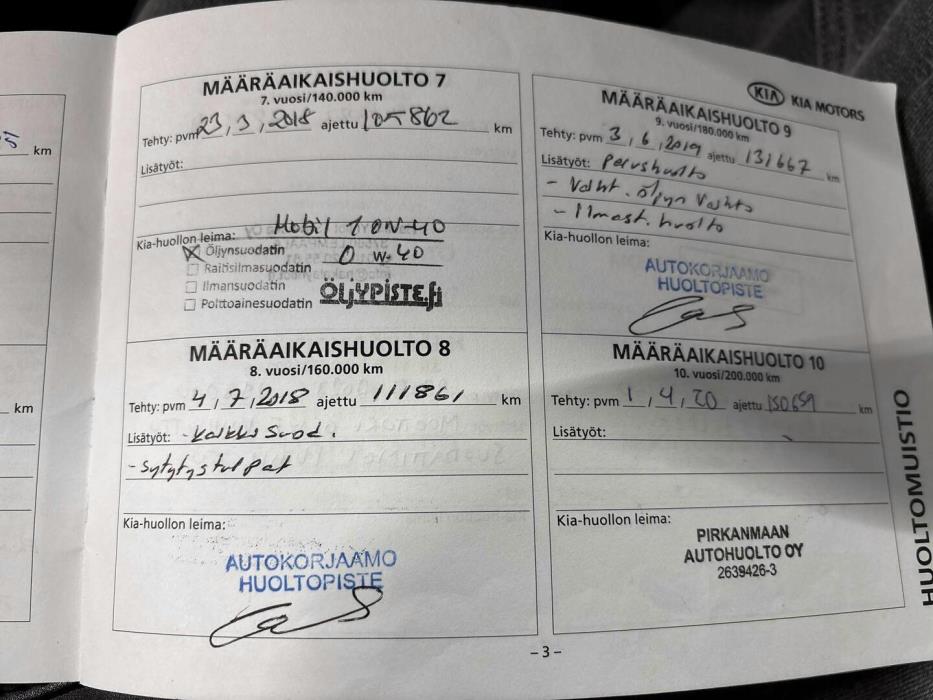 sı km
km
MÄÄRÄAIKAISHUOLTO 7
7. vuosi/140.000 km
Tehty: pvm 23, 3, 2018 ajettu 105862 km
Lisätyöt:
Mobil 1 0W-40
Kia-huollon leima:
Öljynsuodatin 0 W-40
Raitisilmasuodatin
Ilmansuodatin
Polttoainesuodatin
ÖLJYPISTE.fi
MÄÄRÄAIKAISHUOLTO 8
8. vuosi/160.000 km
Tehty: pvm 4, 7, 2018 ajettu 111861 km
Lisätyöt: - kaikki suod.
- sytytystulpat
Kia-huollon leima:
AUTOKORJAAMO
HUOLTOPISTE
KIA KIA MOTORS
MÄÄRÄAIKAISHUOLTO 9
9. vuosi/180.000 km
Tehty: pvm 3, 6, 2019 ajettu 131667 km
Lisätyöt: Perushuolto
- Vaiht. öljyn Vaihto
- Ilmast. huolto
Kia-huollon leima:
AUTOKORJAAMO
HUOLTOPISTE
MÄÄRÄAIKAISHUOLTO 10
10. vuosi/200.000 km
Tehty: pvm 1, 4, 20 ajettu 150659 km
Lisätyöt:
Kia-huollon leima:
PIRKANMAAN
AUTOHUOLTO OY
2639426-3
HUOLTOMUISTIO
- 3 -